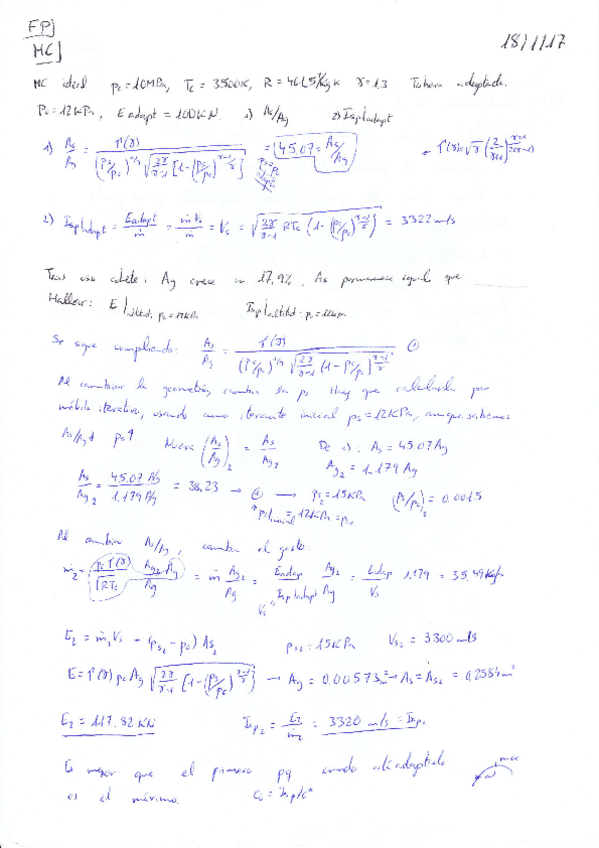 FP
MC 18/1/17
MC ideal pc=10MPa, Tc=3500K, R=461.5 J/kgK γ=1.3 Tobera adaptada.
Pa=12KPa, E adapt=100KN. 1) As/Ag 2) Isp|adapt
1) As/Ag = Γ(γ) / ((Ps/Pc)^(1/γ) √(2γ/(γ-1) [1-(Ps/Pc)^((γ-1)/γ)])) = 45.07 = As/Ag Γ(γ)=√γ (2/(γ+1))^((γ+1)/(2(γ-1)))
2) Isp|adapt = Eadapt/ṁ = ṁVs/ṁ = Vs = √(2γ/(γ-1) RTc (1-(Ps/Pc)^((γ-1)/γ))) = 3322 m/s
Tras uso cohete: Ag crece un 17.9%. As permanece igual que
Hallar: E|altitud: pa=12KPa Isp|altitud: pa=12KPa
Se sigue cumpliendo: As/Ag = Γ(γ) / ((Ps/Pc)^(1/γ) √(2γ/(γ-1) (1-(Ps/Pc)^((γ-1)/γ)))
Al cambiar la geometría, cambia la ps Hay que calcularla por
método iterativo, usando como iterante inicial ps=12KPa, aunque sabemos
As/Ag↓ ps↑ Nueva (As/Ag)2 = As/Ag2 De 1): As=45.07Ag
Ag2=1.179 Ag
As/Ag2 = 45.07Ag/1.179Ag = 38.23 → → Ps2=15KPa (Ps/Pc)2 = 0.0015
ps|inicial=12KPa=ps1
Al cambiar As/Ag, cambia el gasto:
ṁ2 = pcΓ(γ)/√RTc Ag2 Ag/Ag = ṁ Ag2/Ag = Eadap/Isp|adapt Ag2/Ag = Eadap/Vs 1.179 = 35.49Kg/s
Vs
E2 = ṁ2Vs + (ps2-pa) As2 ps2=15KPa Vs2=3300m/s
E=Γ(γ) pc Ag √(2γ/(γ-1) [1-(Ps/Pc)^((γ-1)/γ)]) → Ag=0.00573m² → As=As2=0.2584m²
E2=117.82KN Isp2 = E2/ṁ2 = 3320 m/s = Isp2
Es mejor que el primero pq cuando está adaptada
es el máximo.